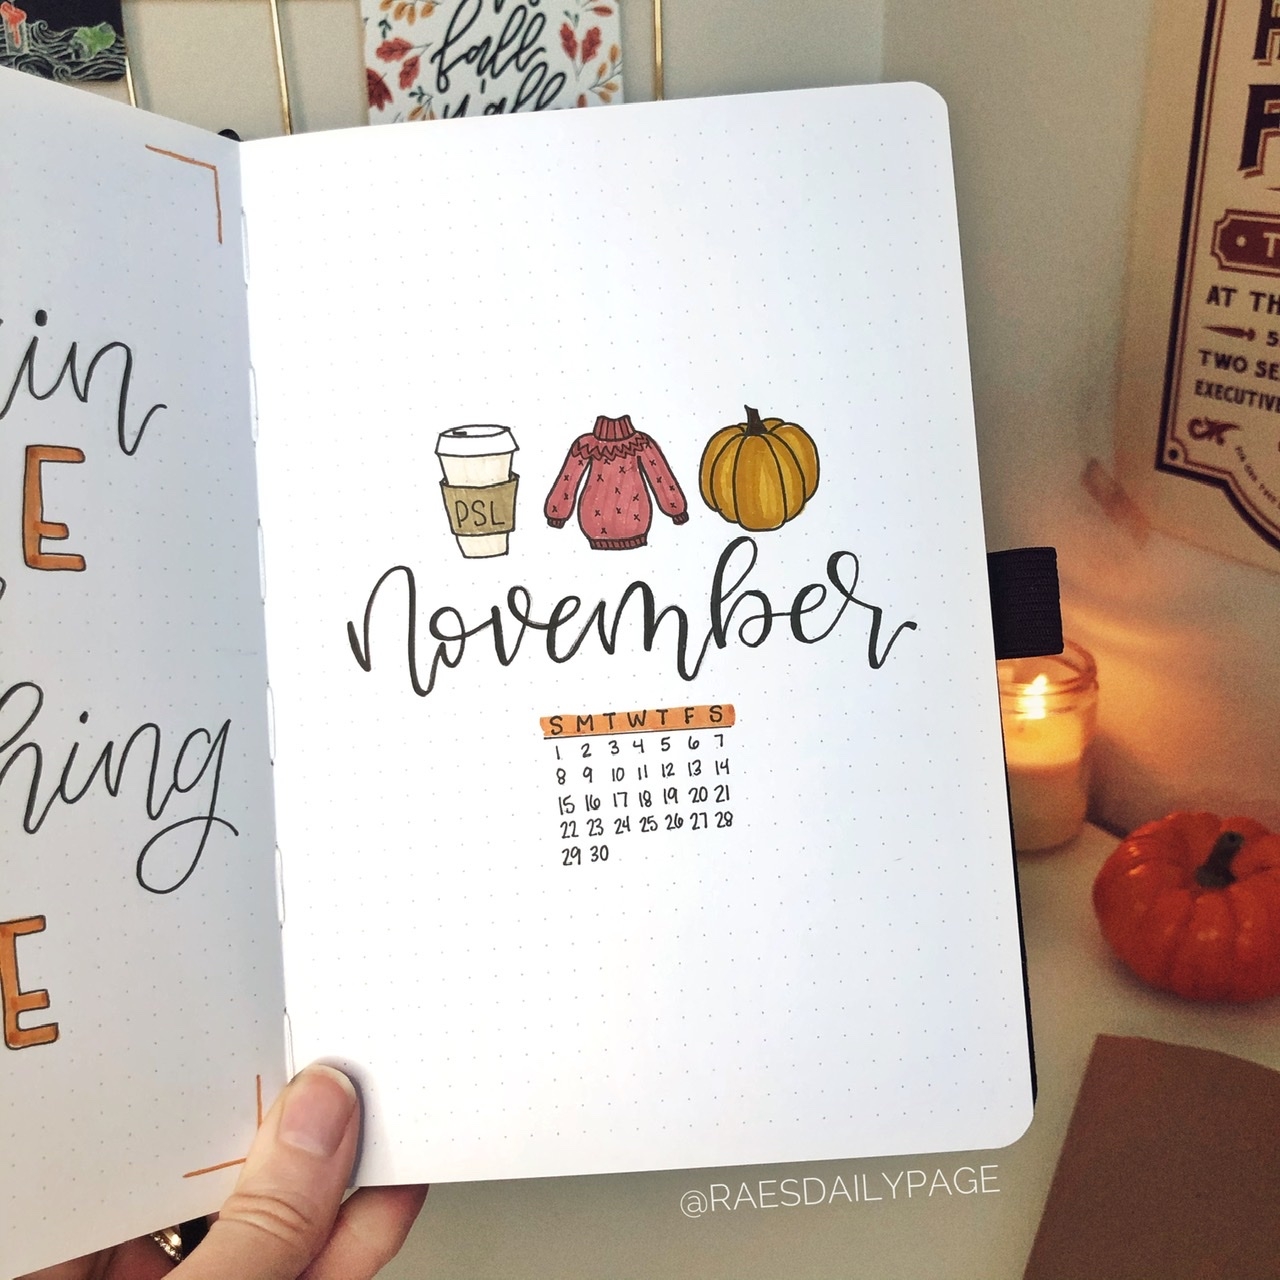 fall
y'all
E
E
PSL
november
S M T W T F S
1 2 3 4 5 6 7
8 9 10 11 12 13 14
15 16 17 18 19 20 21
22 23 24 25 26 27 28
29 30
AT TH
TWO SE
EXECUTIVE
@RAESDAILYPAGE